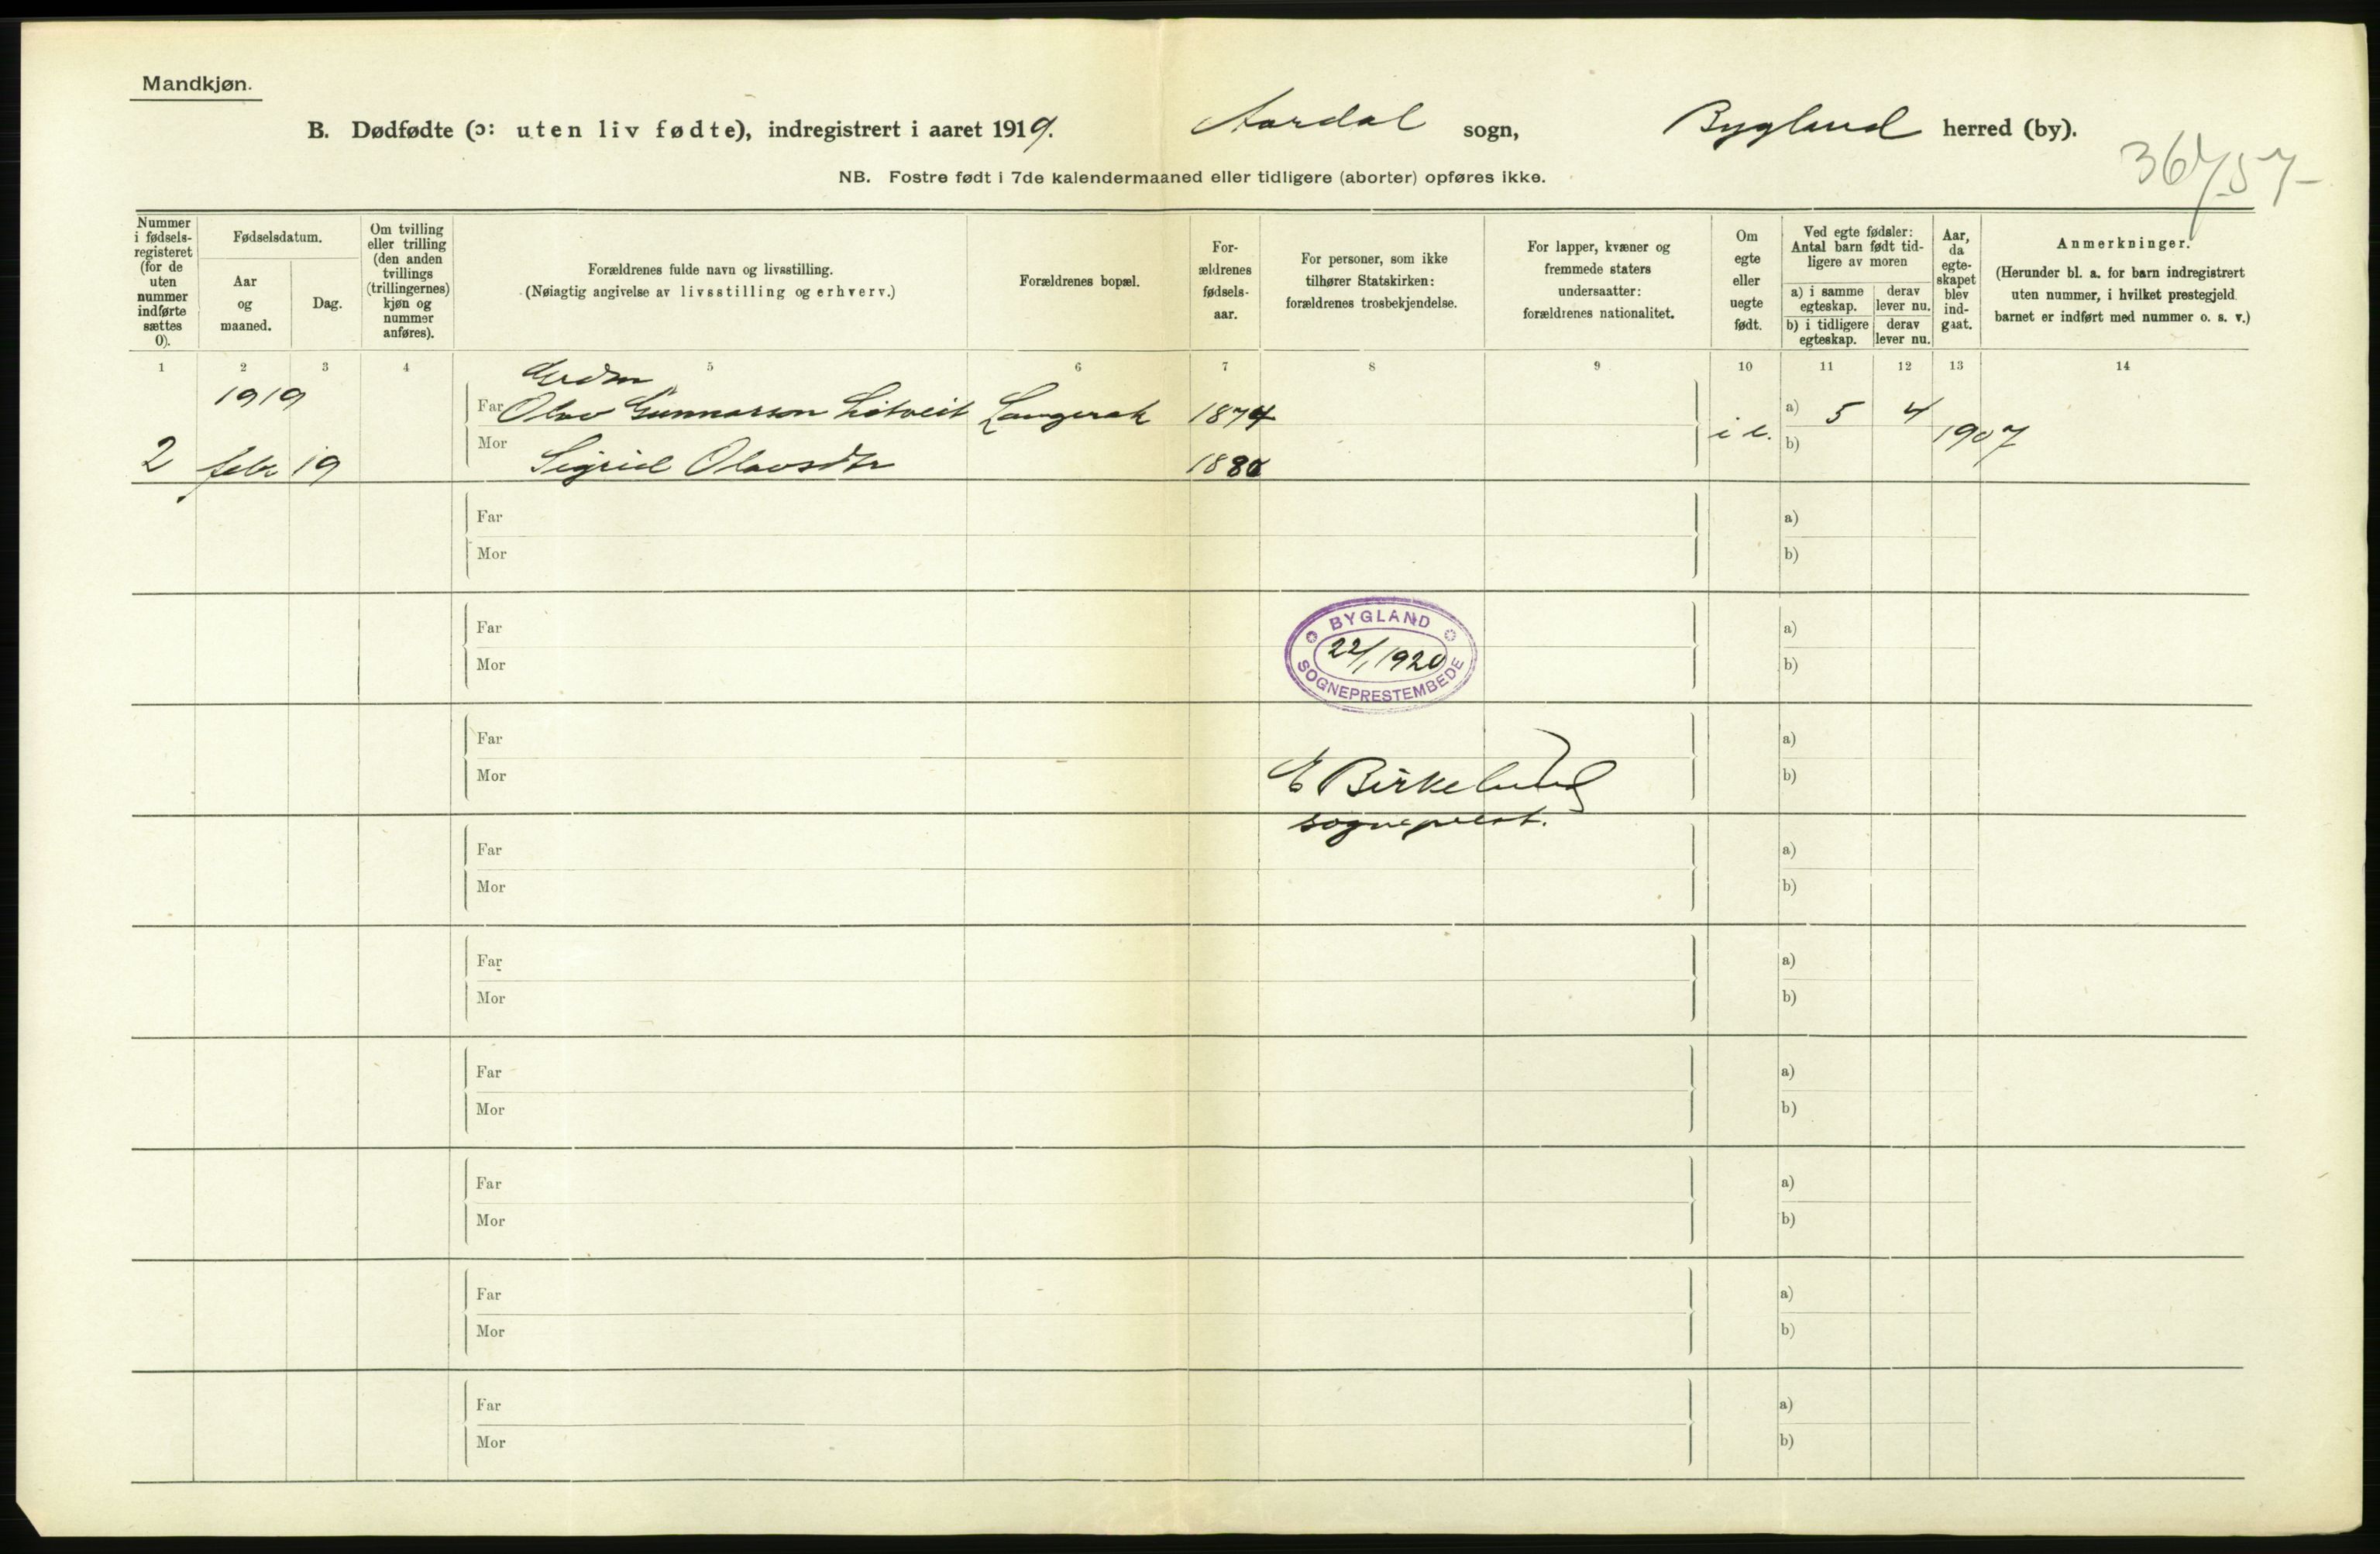 Mandkjøn.
B. Dødfødte (ɔ: uten liv fødte), indregistrert i aaret 1919. Aardal sogn, Bygland herred (by).
NB. Fostre født i 7de kalendermaaned eller tidligere (aborter) opføres ikke.
Nummer i fødsels-registeret (for de uten nummer indførte sættes 0).
Fødselsdatum.
Aar og maaned.
Dag.
Om tvilling eller trilling (den anden tvillings (trillingernes) kjøn og nummer anføres).
Forældrenes fulde navn og livsstilling.
(Nøiagtig angivelse av livsstilling og erhverv.)
Forældrenes bopæl.
For-ældrenes fødsels-aar.
For personer, som ikke tilhører Statskirken: forældrenes trosbekjendelse.
For lapper, kvæner og fremmede staters undersaatter: forældrenes nationalitet.
Om egte eller uegte født.
Ved egte fødsler: Antal barn født tid-ligere av moren
a) i samme egteskap.
derav lever nu.
b) i tidligere egteskap.
derav lever nu.
Aar, da egte-skapet blev ind-gaat.
Anmerkninger.
(Herunder bl. a. for barn indregistrert uten nummer, i hvilket prestegjeld barnet er indført med nummer o. s. v.)
1 2 3 4 5 6 7 8 9 10 11 12 13 14
1919
Far Olav Gunnarson Langerak 1874 a) 5 4
2 febr 19 Mor Sigrid Olavsdtr 1880 i e. b) 1907
Far a)
Mor b)
Far a)
Mor b)
BYGLAND
22/1 1920
SOGNEPRESTEMBEDE
Far a)
Mor b)
E Birkelund
sogneprest.
Far a)
Mor b)
Far a)
Mor b)
Far a)
Mor b)
Far a)
Mor b)
Far a)
Mor b)
Far a)
Mor b)